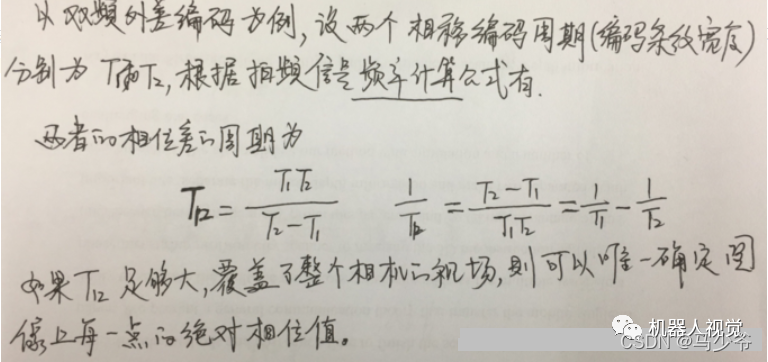 以双频外差编码为例,设两个相移编码周期(编码条纹宽度)
分别为T₁和T₂,根据拍频信号频率计算公式有.
两者的相位差的周期为
T₁₂ = T₁T₂ / (T₂ - T₁)    1/T₁₂ = (T₂ - T₁) / (T₁T₂) = 1/T₁ - 1/T₂
如果T₁₂足够大,覆盖了整个相机的视场,则可以唯一确定图
像上每一点的绝对相位值。
机器人视觉
CSDN @马少爷